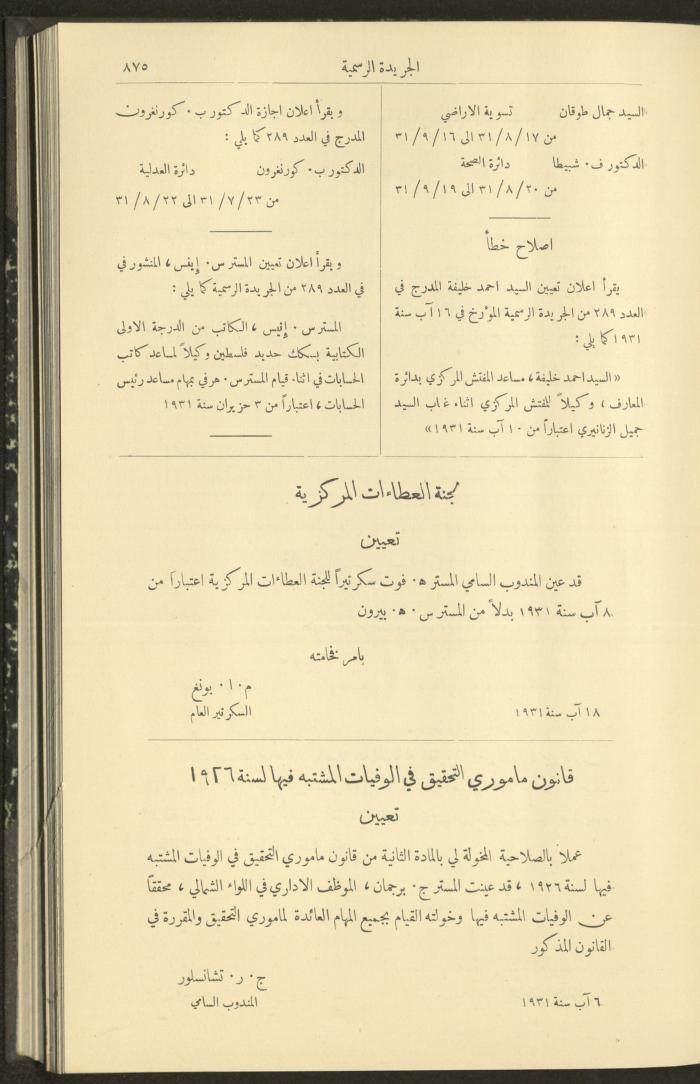 الجريدة الرسمية
٨٧٥
السيد جمال طوقان تسوية الاراضي
من ٣١/٨/١٧ الى ٣١/٩/١٦
الدكتور ف. شبيطا دائرة الصحة
من ٣١/٨/٢٠ الى ٣١/٩/١٩
اصلاح خطأ
يقرأ اعلان تعيين السيد احمد خليفة المدرج في
العدد ٢٨٩ من الجريدة الرسمية المؤرخ في ١٦ آب سنة
١٩٣١ كما يلي :
«السيد احمد خليفة، مساعد المفتش المركزي بدائرة
المعارف، وكيلاً للمفتش المركزي اثناء غياب السيد
جميل الزنانيري اعتباراً من ١٠ آب سنة ١٩٣١»
ويقرأ اعلان اجازة الدكتور ب. كورنغرون
المدرج في العدد ٢٨٩ كما يلي :
الدكتور ب. كورنغرون دائرة العدلية
من ٣١/٧/٢٣ الى ٣١/٨/٢٢
ويقرأ اعلان تعيين المستر س. إيفس، المنشور في
في العدد ٢٨٩ من الجريدة الرسمية كما يلي :
المستر س. إيفيس، الكاتب من الدرجة الاولى
الكتابية بسكك حديد فلسطين وكيلاً لمساعد كاتب
الحسابات في اثناء قيام المستر س. هرفي بمهام مساعد رئيس
الحسابات، اعتباراً من ٣ حزيران سنة ١٩٣١
لجنة العطاءات المركزية
تعيين
قد عين المندوب السامي المستر ه. فوت سكرتيراً للجنة العطاءات المركزية اعتباراً من
٨ آب سنة ١٩٣١ بدلاً من المستر س. ه. بيرون
بامر فخامته
م. ا. يونغ
السكرتير العام
١٨ آب سنة ١٩٣١
قانون ماموري التحقيق في الوفيات المشتبه فيها لسنة ١٩٢٦
تعيين
عملاً بالصلاحية المخولة لي بالمادة الثانية من قانون ماموري التحقيق في الوفيات المشتبه
فيها لسنة ١٩٢٦، قد عينت المستر ج. برجمان، الموظف الاداري في اللواء الشمالي، محققاً
عن الوفيات المشتبه فيها وخولته القيام بجميع المهام العائدة لماموري التحقيق والمقررة في
القانون المذكور
ج. ر. تشانسلور
المندوب السامي
٦ آب سنة ١٩٣١